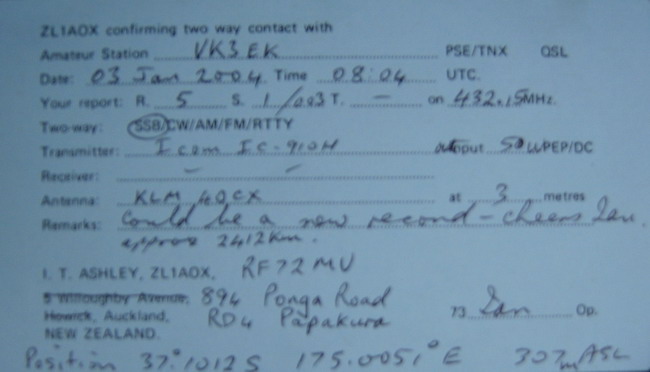 ZL1AOX confirming two way contact with
Amateur Station VK3EK PSE/TNX QSL
Date: 03 Jan 2004 Time 08:04 UTC.
Your report: R. 5 S. 1/003 T. — on 432.15 MHz.
Two-way: SSB/CW/AM/FM/RTTY
Transmitter: Icom IC-910H output 50 W PEP/DC
Receiver: — —
Antenna: KLM 40CX at 3 metres
Remarks: Could be a new record – cheers Ian.
approx 2412km.
I. T. ASHLEY, ZL1AOX, RF72MU
5 Willoughby Avenue, 894 Ponga Road
Howick, Auckland, RD4 Papakura 73 Ian Op.
NEW ZEALAND.
Position 37.°1012 S 175.0051° E 307m ASL